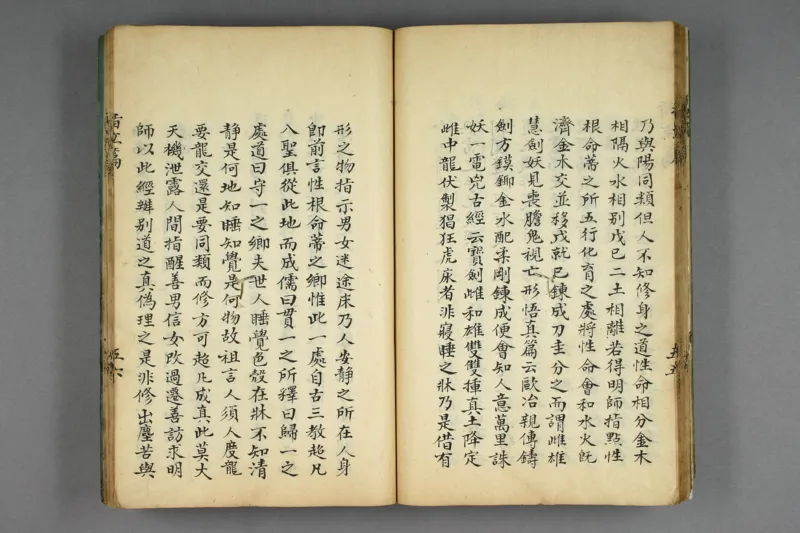 乃與陽同類但人不知修身之道性命相分金木
相隔火水相別戊己二土相離若得明師指點性
根命蒂之所五行化育之處將性命會和水火旣
濟金木交並移戊就己鍊成刀圭分之而謂雌雄
慧劍妖見喪膽鬼視亡形悟真篇云歐冶親傳鑄
劍方鏌鎁金水配柔剛鍊成便會知人意萬里誅
妖一電光古經云寶劍雌和雄雙雙揰真土降定
雌中龍伏掣猖狂虎床者非寢睡之牀乃是借有
形之物指示男女迷途床乃人安静之所在人身
即前言性根命蒂之鄉惟此一處自古三教超凡
入聖俱從此地而成儒曰貫一之所釋曰歸一之
處道曰守一之鄉夫世人睡覺色殼在牀不知清
静是何地知睡知覺是何物故祖言人須人度龍
要龍交還是要同類而修方可超凡成真此莫大
天機泄露人間指醒善男信女改過遷善訪求明
師以此經辨别道之真偽理之是非修出塵苦與
五六
五五